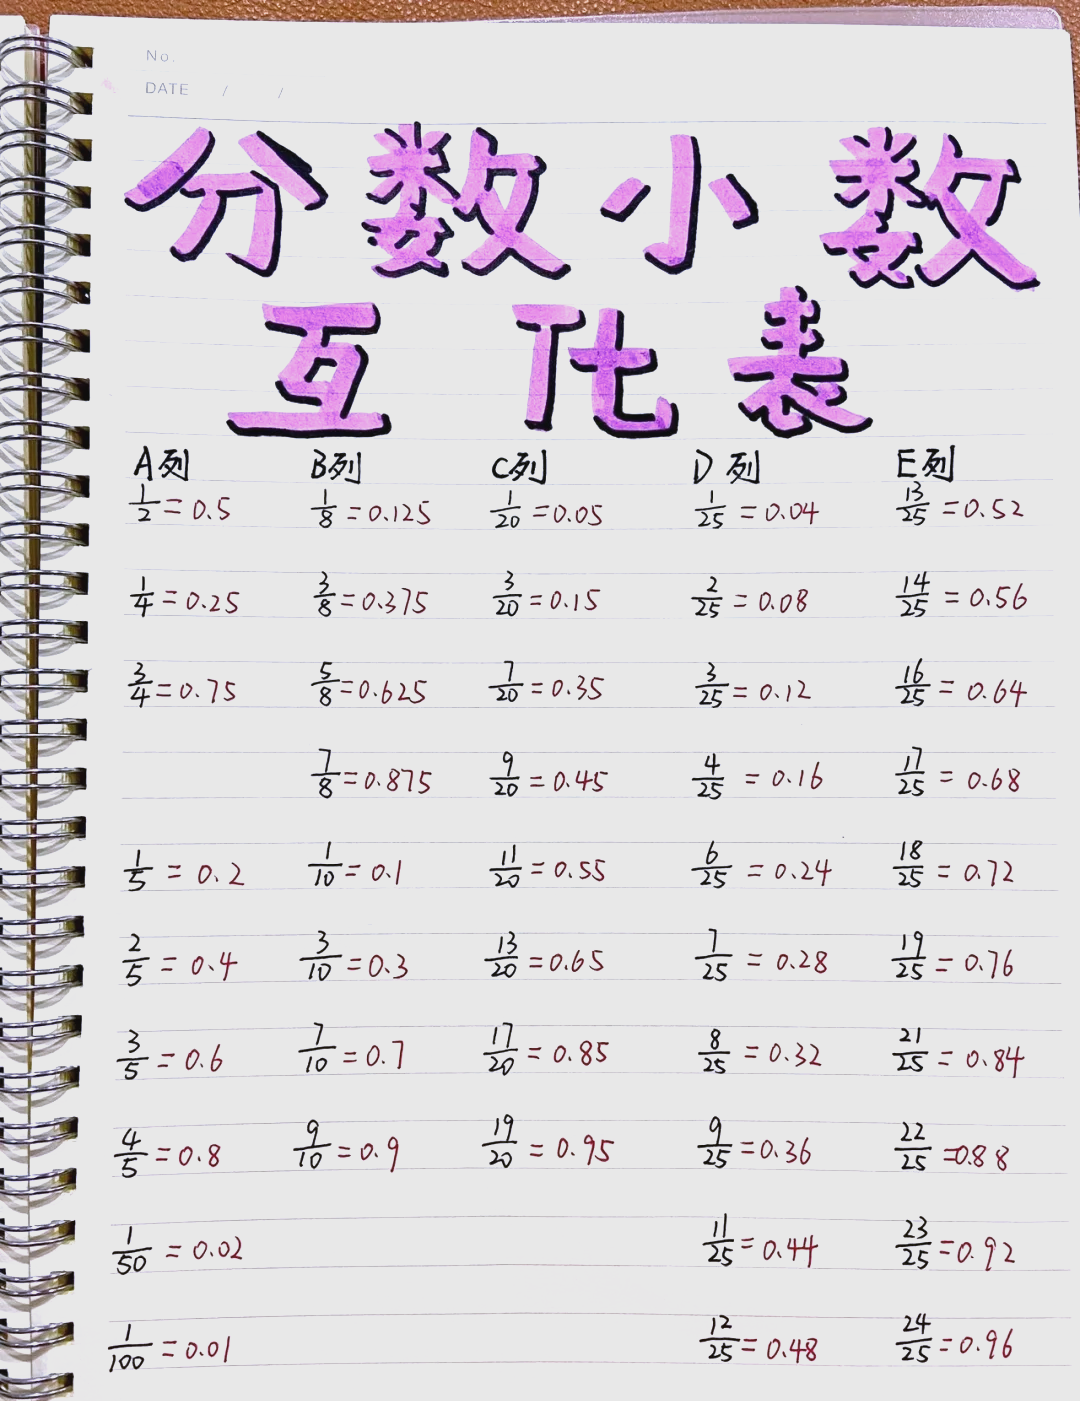 No.
DATE / /
分数小数
互化表
A列 B列 C列 D列 E列
1/2=0.5 1/8=0.125 1/20=0.05 1/25=0.04 13/25=0.52
1/4=0.25 3/8=0.375 3/20=0.15 2/25=0.08 14/25=0.56
3/4=0.75 5/8=0.625 7/20=0.35 3/25=0.12 16/25=0.64
7/8=0.875 9/20=0.45 4/25=0.16 17/25=0.68
1/5=0.2 1/10=0.1 11/20=0.55 6/25=0.24 18/25=0.72
2/5=0.4 3/10=0.3 13/20=0.65 7/25=0.28 19/25=0.76
3/5=0.6 7/10=0.7 17/20=0.85 8/25=0.32 21/25=0.84
4/5=0.8 9/10=0.9 19/20=0.95 9/25=0.36 22/25=0.88
1/50=0.02 11/25=0.44 23/25=0.92
1/100=0.01 12/25=0.48 24/25=0.96